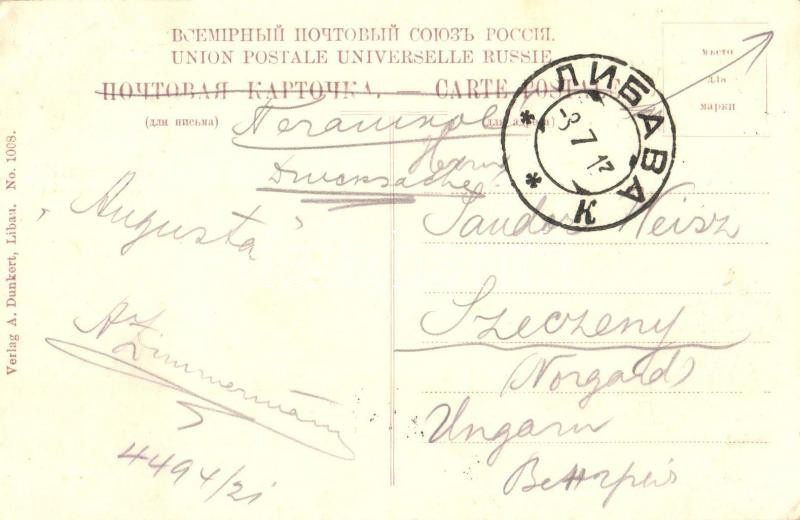 ВСЕМІРНЫЙ ПОЧТОВЫЙ СОЮЗЪ РОССІЯ.
UNION POSTALE UNIVERSELLE RUSSIE
ПОЧТОВАЯ КАРТОЧКА. — CARTE POSTALE
(для письма)
мѣсто
для
марки
ЛИБАВА
-8 7 12
К
Drucksache
„Augusta"
A Zimmermann
4494/21
Herrn
Sandor Weisz
Szeczeny
Norgard
Ungarn
Венгрія
Verlag A. Dunkert, Libau. No. 1008.